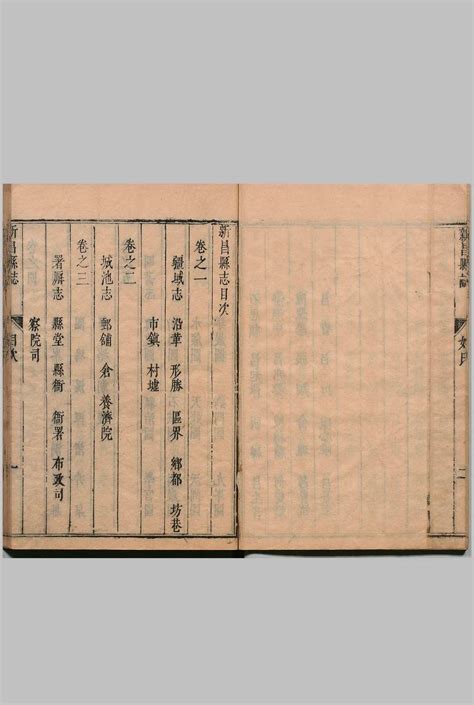 新昌縣誌
二
新昌縣志目次
卷之一
疆域志 沿革 形勝 區界 鄉都 坊巷
市鎮 村墟
卷之二
城池志 郵舖 倉 養濟院
卷之三
署廨志 縣堂 縣衙 衙署 布政司
察院司
新昌縣志 目次 一